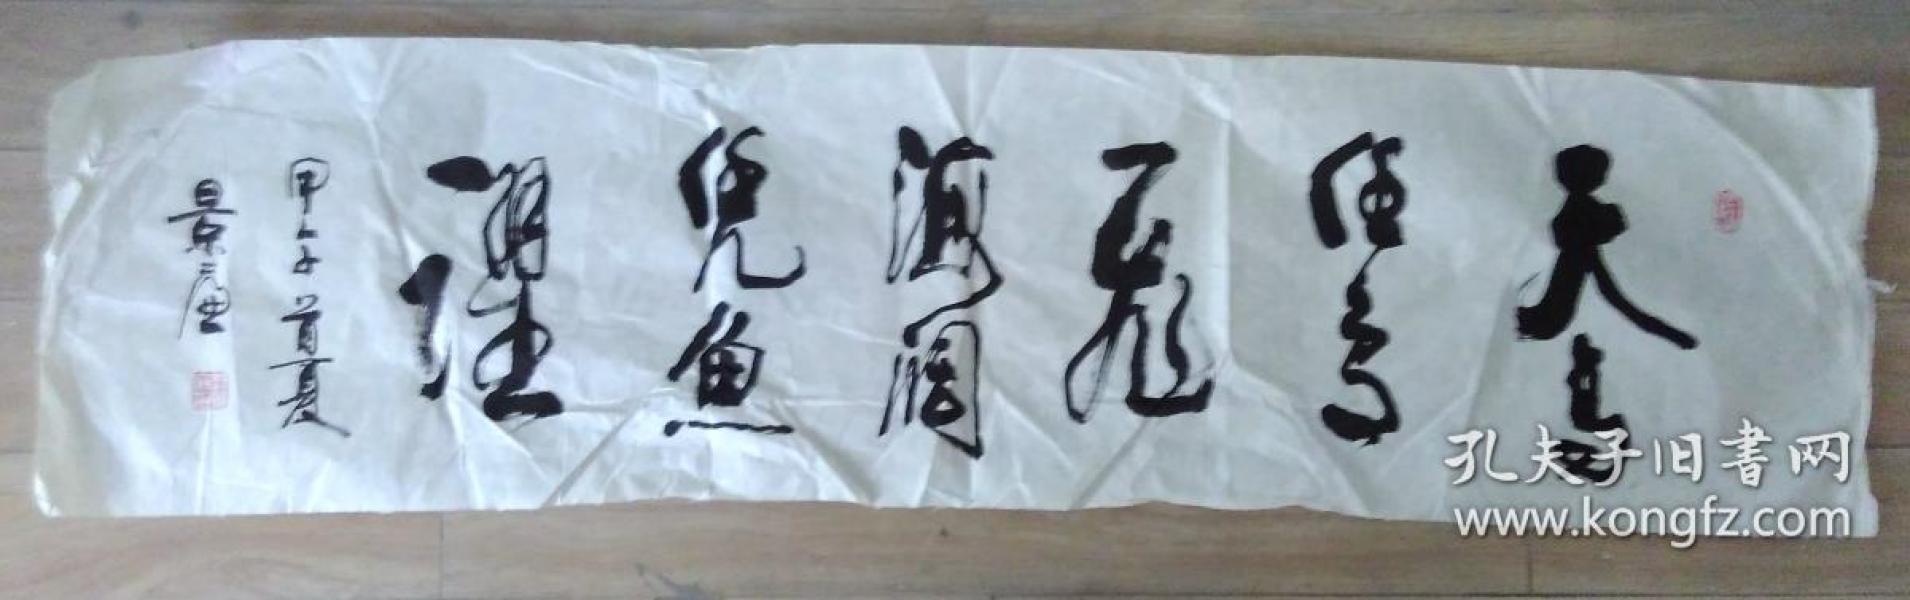 天高
任鸟
飛
海阔
凭魚
躍
甲午首夏
景唐
孔夫子旧書网
www.kongfz.com